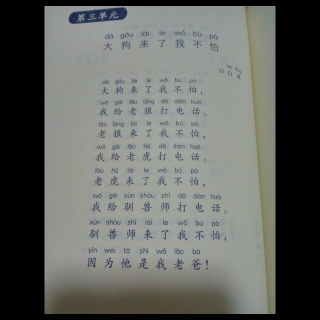 第三单元
dà gǒu lái le wǒ bú pà
大狗来了我不怕
dà gǒu lái le wǒ bú pà
大狗来了我不怕，
wǒ gěi lǎo láng dǎ diàn huà
我给老狼打电话。
lǎo láng lái le wǒ bú pà
老狼来了我不怕，
wǒ gěi lǎo hǔ dǎ diàn huà
我给老虎打电话。
lǎo hǔ lái le wǒ bú pà
老虎来了我不怕，
wǒ gěi xùn shòu shī dǎ diàn huà
我给驯兽师打电话。
xùn shòu shī lái le wǒ bú pà
驯兽师来了我不怕，
yīn wèi tā shì wǒ lǎo bà
因为他是我老爸！